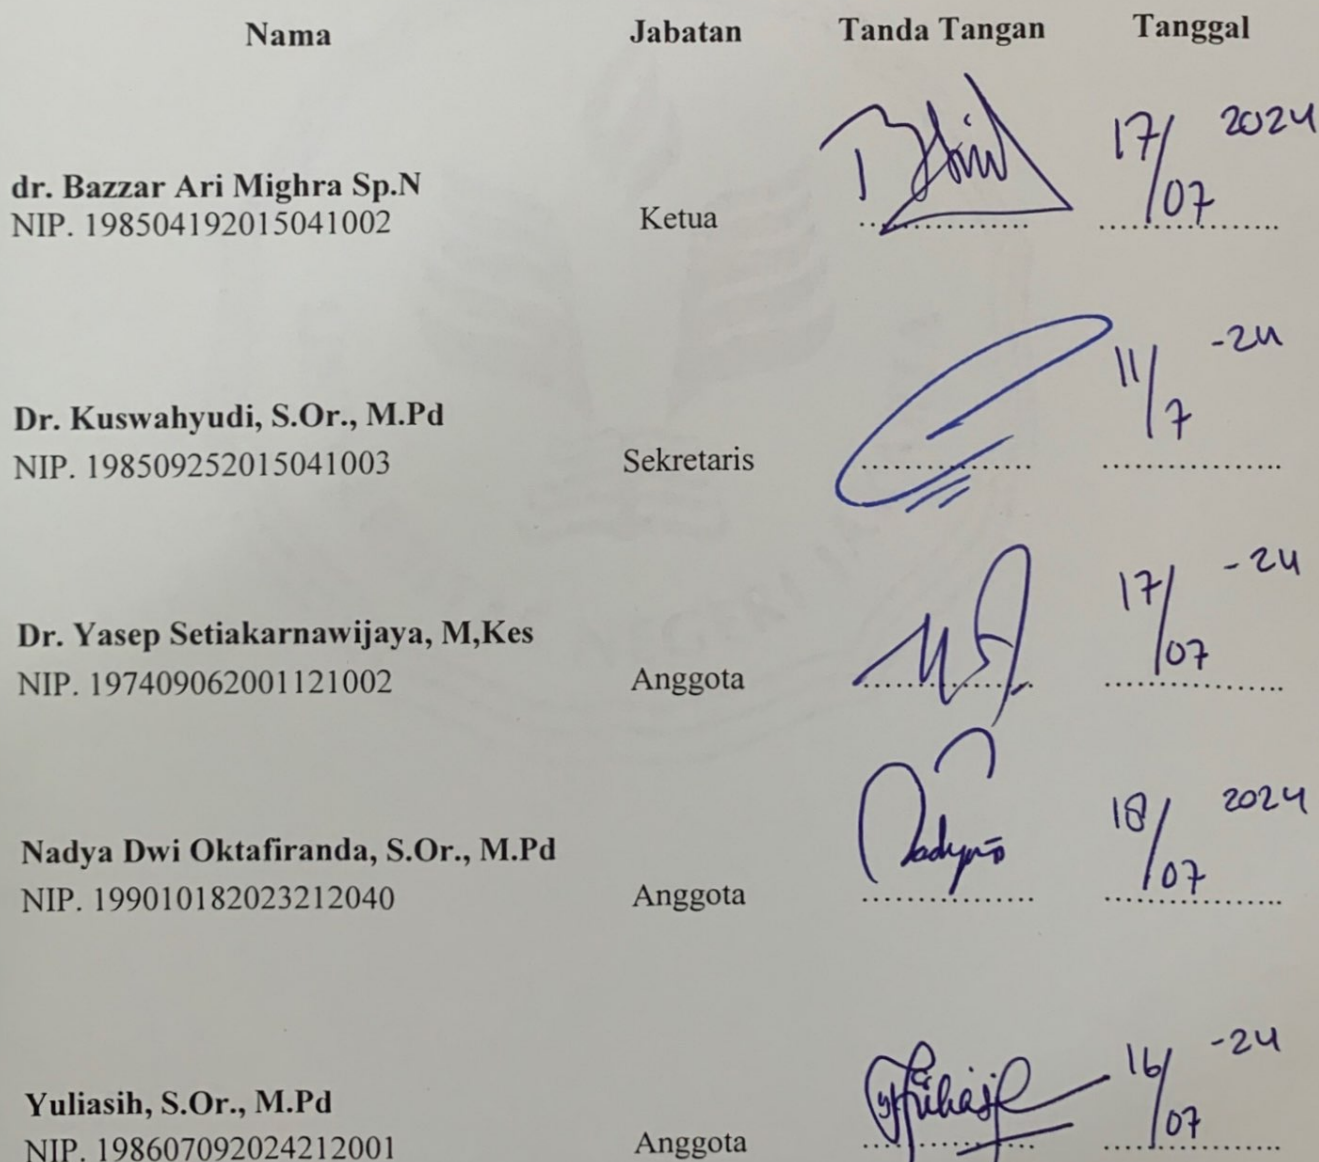 Nama Jabatan Tanda Tangan Tanggal
17/07 2024
dr. Bazzar Ari Mighra Sp.N
NIP. 198504192015041002 Ketua
11/7 -24
Dr. Kuswahyudi, S.Or., M.Pd
NIP. 198509252015041003 Sekretaris
17/07 -24
Dr. Yasep Setiakarnawijaya, M,Kes
NIP. 197409062001121002 Anggota
18/07 2024
Nadya Dwi Oktafiranda, S.Or., M.Pd
NIP. 199010182023212040 Anggota
16/07 -24
Yuliasih, S.Or., M.Pd
NIP. 198607092024212001 Anggota